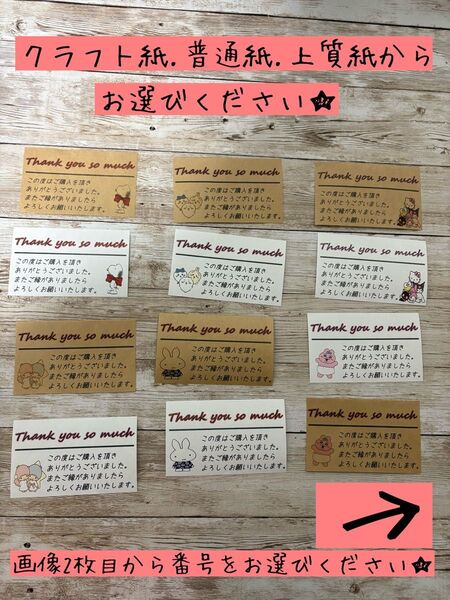 クラフト紙.普通紙.上質紙から
お選びください★
Thank you so much
この度はご購入を頂き
ありがとうございました。
またご縁がありましたら
よろしくお願いいたします。
Thank you so much
この度はご購入を頂き
ありがとうございました。
またご縁がありましたら
よろしくお願いいたします。
Thank you so much
この度はご購入を頂き
ありがとうございました。
またご縁がありましたら
よろしくお願いいたします。
Thank you so much
この度はご購入を頂き
ありがとうございました。
またご縁がありましたら
よろしくお願いいたします。
Thank you so much
この度はご購入を頂き
ありがとうございました。
またご縁がありましたら
よろしくお願いいたします。
Thank you so much
この度はご購入を頂き
ありがとうございました。
またご縁がありましたら
よろしくお願いいたします。
Thank you so much
この度はご購入を頂き
ありがとうございました。
またご縁がありましたら
よろしくお願いいたします。
Thank you so much
この度はご購入を頂き
ありがとうございました。
またご縁がありましたら
よろしくお願いいたします。
Thank you so much
この度はご購入を頂き
ありがとうございました。
またご縁がありましたら
よろしくお願いいたします。
Thank you so much
この度はご購入を頂き
ありがとうございました。
またご縁がありましたら
よろしくお願いいたします。
Thank you so much
この度はご購入を頂き
ありがとうございました。
またご縁がありましたら
よろしくお願いいたします。
Thank you so much
この度はご購入を頂き
ありがとうございました。
またご縁がありましたら
よろしくお願いいたします。
画像2枚目から番号をお選びください★